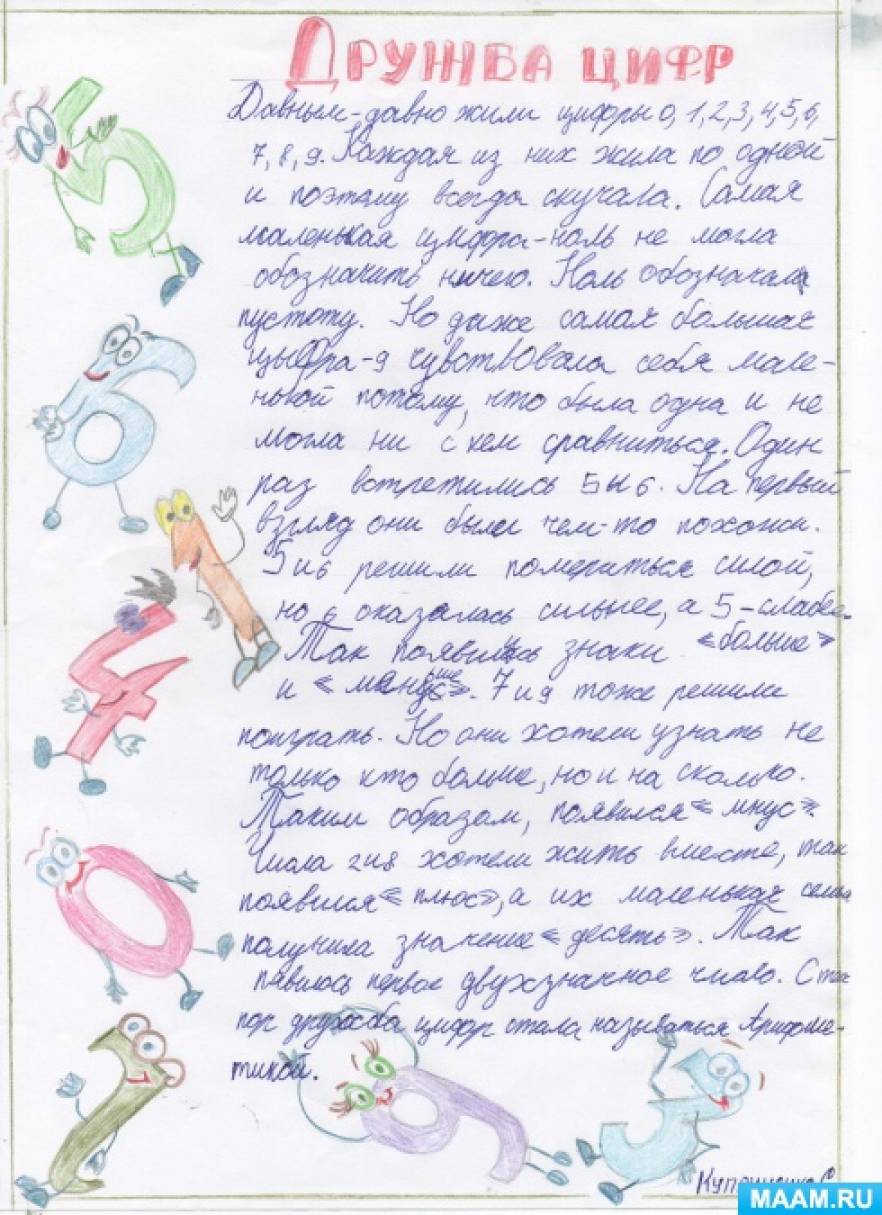 ДРУЖБА ЦИФР
Давным-давно жили цифры 0, 1, 2, 3, 4, 5, 6,
7, 8, 9. Каждая из них жила по одной
и поэтому всегда скучала. Самая
маленькая цифра-ноль не могла
обозначить ничего. Ноль обозначал
пустоту. Но даже самая большая
цыфра-9 чувствовала себя мале-
нькой потому, что была одна и не
могла ни с кем сравниться. Один
раз встретились 5 и 6. На первый
взгляд они были чем-то похожи.
5 и 6 решили помериться силой,
но 6 оказалась сильнее, а 5-слабее.
Так появились знаки «больше»
и «меньше». 7 и 9 тоже решили
поиграть. Но они хотели узнать не
только кто больше, но и на сколько.
Таким образом, появился «мнус».
Числа 2 и 8 хотели жить вместе, так
появился «плюс», а их маленькая семья
получила значение «десять». Так
павилось первое двухзначное число. С тех
пор дружба цифр стала называться Арифме-
тикой.
MAAM.RU